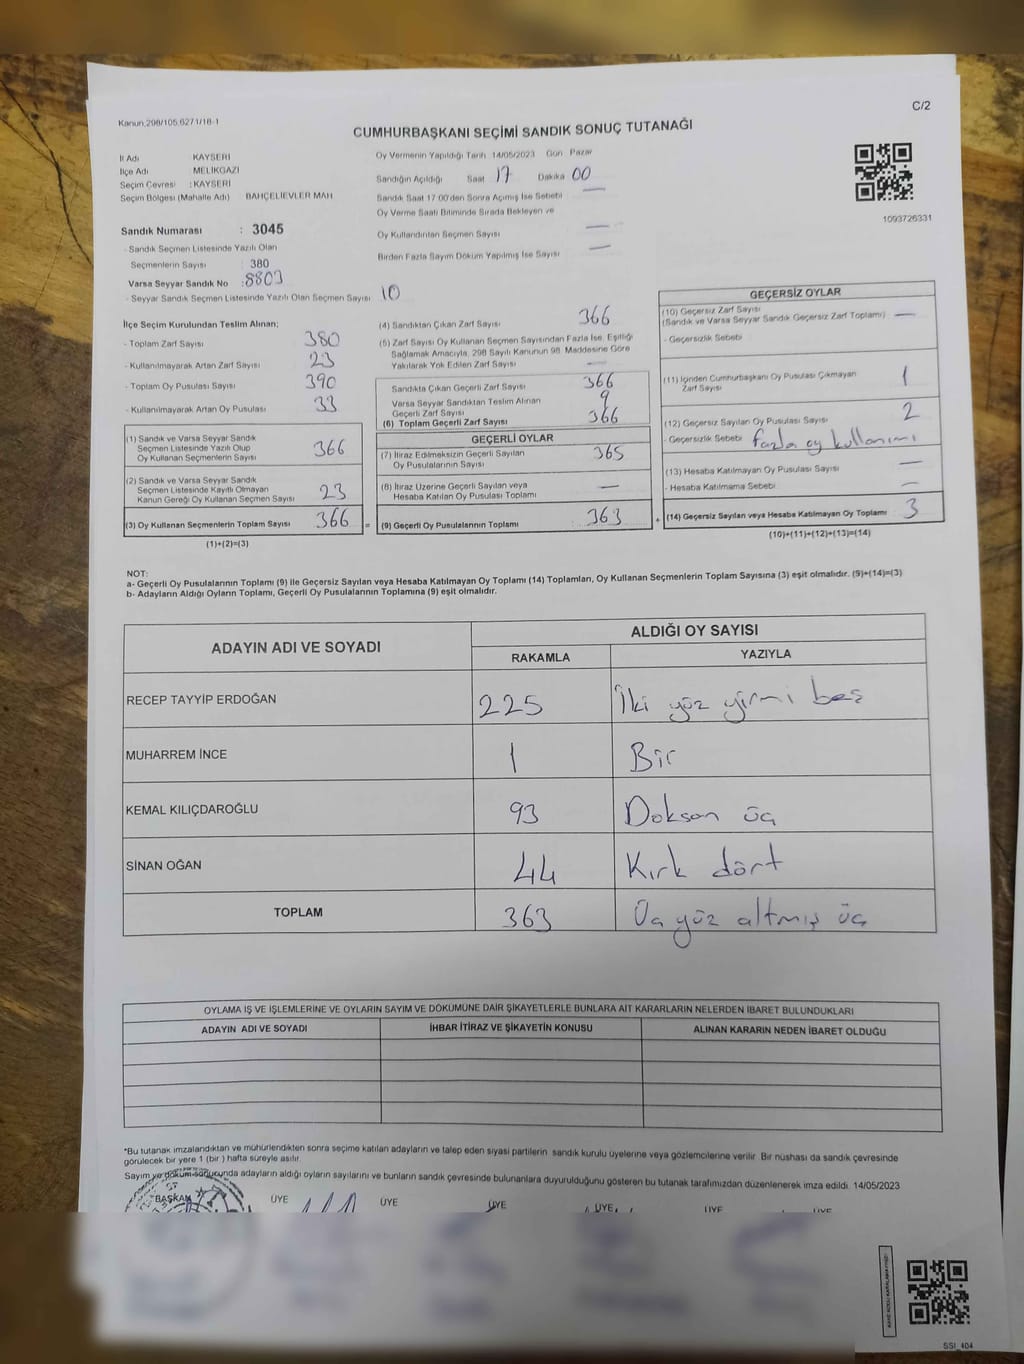 C/2
Kanun 298/105.6271/16-1
CUMHURBAŞKANI SEÇİMİ SANDIK SONUÇ TUTANAĞI
İl Adı KAYSERİ
İlçe Adı MELİKGAZİ
Seçim Çevresi : KAYSERİ
Seçim Bölgesi (Mahalle Adı) BAHÇELİEVLER MAH
Oy Vermenin Yapıldığı Tarih 14/05/2023 Gün Pazar
Sandığın Açıldığı Saat 17 Dakika 00
Sandık Saat 17 00'den Sonra Açımış İse Sebebi
Oy Verme Saati Bitiminde Sırada Bekleyen ve
Oy Kullandırılan Seçmen Sayısı
Birden Fazla Sayım Döküm Yapılmış İse Sayısı
1093726331
Sandık Numarası : 3045
- Sandık Seçmen Listesinde Yazılı Olan
Seçmenlerin Sayısı : 380
Varsa Seyyar Sandık No : 8803
- Seyyar Sandık Seçmen Listesinde Yazılı Olan Seçmen Sayısı 10
İlçe Seçim Kurulundan Teslim Alınan;
- Toplam Zarf Sayısı 380
- Kullanılmayarak Artan Zarf Sayısı 23
- Toplam Oy Pusulası Sayısı 390
- Kullanılmayarak Artan Oy Pusulası 33
(1) Sandık ve Varsa Seyyar Sandık
Seçmen Listesinde Yazılı Olup
Oy Kullanan Seçmenlerin Sayısı 366
(2) Sandık ve Varsa Seyyar Sandık
Seçmen Listesinde Kayıtlı Olmayan
Kanun Gereği Oy Kullanan Seçmen Sayısı 23
(3) Oy Kullanan Seçmenlerin Toplam Sayısı 366 =
(1)+(2)=(3)
(4) Sandıktan Çıkan Zarf Sayısı 366
(5) Zarf Sayısı Oy Kullanan Seçmen Sayısından Fazla İse, Eşitliği
Sağlamak Amacıyla, 298 Sayılı Kanunun 98. Maddesine Göre
Yakılarak Yok Edilen Zarf Sayısı —
Sandıkta Çıkan Geçerli Zarf Sayısı 366
Varsa Seyyar Sandıktan Teslim Alınan
Geçerli Zarf Sayısı 9
(6) Toplam Geçerli Zarf Sayısı 366
GEÇERLİ OYLAR
(7) İtiraz Edilmeksizin Geçerli Sayılan
Oy Pusulalarının Sayısı 365
(8) İtiraz Üzerine Geçerli Sayılan veya
Hesaba Katılan Oy Pusulası Toplamı —
(9) Geçerli Oy Pusulalarının Toplamı 363 +
GEÇERSİZ OYLAR
(10) Geçersiz Zarf Sayısı
(Sandık ve Varsa Seyyar Sandık Geçersiz Zarf Toplamı) —
- Geçersizlik Sebebi
(11) İçinden Cumhurbaşkanı Oy Pusulası Çıkmayan
Zarf Sayısı 1
(12) Geçersiz Sayılan Oy Pusulası Sayısı 2
- Geçersizlik Sebebi fazla oy kullanımı
(13) Hesaba Katılmayan Oy Pusulası Sayısı —
- Hesaba Katılmama Sebebi —
(14) Geçersiz Sayılan veya Hesaba Katılmayan Oy Toplamı 3
(10)+(11)+(12)+(13)=(14)
NOT:
a- Geçerli Oy Pusulalarının Toplamı (9) ile Geçersiz Sayılan veya Hesaba Katılmayan Oy Toplamı (14) Toplamları, Oy Kullanan Seçmenlerin Toplam Sayısına (3) eşit olmalıdır. (9)+(14)=(3)
b- Adayların Aldığı Oyların Toplamı, Geçerli Oy Pusulalarının Toplamına (9) eşit olmalıdır.
ADAYIN ADI VE SOYADI
ALDIĞI OY SAYISI
RAKAMLA YAZIYLA
RECEP TAYYİP ERDOĞAN 225 İki yüz yirmi beş
MUHARREM İNCE 1 Bir
KEMAL KILIÇDAROĞLU 93 Doksan üç
SİNAN OĞAN 44 Kırk dört
TOPLAM 363 Üç yüz altmış üç
OYLAMA İŞ VE İŞLEMLERİNE VE OYLARIN SAYIM VE DÖKÜMÜNE DAİR ŞİKAYETLERLE BUNLARA AİT KARARLARIN NELERDEN İBARET BULUNDUKLARI
ADAYIN ADI VE SOYADI İHBAR İTİRAZ VE ŞİKAYETİN KONUSU ALINAN KARARIN NEDEN İBARET OLDUĞU
*Bu tutanak imzalandıktan ve mühürlendikten sonra seçime katılan adayların ve talep eden siyasi partilerin sandık kurulu üyelerine veya gözlemcilerine verilir. Bir nüshası da sandık çevresinde
görülecek bir yere 1 (bir) hafta süreyle asılır.
Sayım ve döküm sonucunda adayların aldığı oyların sayılarını ve bunların sandık çevresinde bulunanlara duyurulduğunu gösteren bu tutanak tarafımızdan düzenlenerek imza edildi. 14/05/2023
BAŞKAN ÜYE ÜYE ÜYE ÜYE ÜYE ÜYE
SSI_404